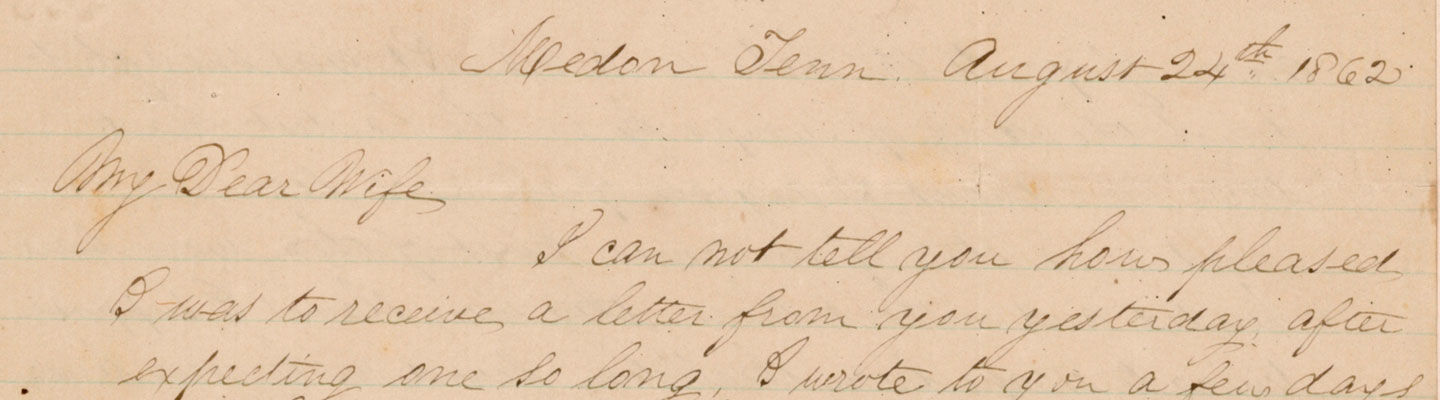 Medon Tenn. August 24th 1862
My Dear Wife
I can not tell you how pleased
I was to receive a letter from you yesterday, after
expecting one so long, I wrote to you a few days